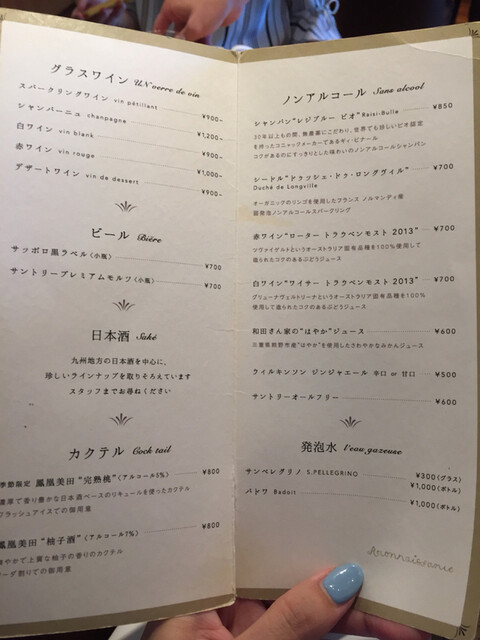 グラスワイン Un verre de vin
スパークリングワイン vin pétillant ¥900-
シャンパーニュ chanpagne ¥1,200-
白ワイン vin blank ¥900-
赤ワイン vin rouge ¥1,000-
デザートワイン vin de dessert ¥900-
ビール Bière
サッポロ黒ラベル〈小瓶〉 ¥700
サントリープレミアムモルツ〈小瓶〉 ¥700
日本酒 Saké
九州地方の日本酒を中心に、
珍しいラインナップを取りそろえています
スタッフまでお尋ねください
カクテル Cock tail
季節限定 鳳凰美田 "完熟桃"〈アルコール5%〉 ¥800
濃厚で香り豊かな日本酒ベースのリキュールを使ったカクテル
フラッシュアイスでの御用意
鳳凰美田 "柚子酒"〈アルコール7%〉 ¥800
爽やかで上質な柚子の香りのカクテル
ソーダ割りでの御用意
ノンアルコール Sans alcool
シャンパン"レジブルー ビオ" Raisi-Bulle ¥850
30年以上もの間、無農薬にこだわり、世界でも珍しいビオ認定
を持ったコニャックメーカーであるギィ・ピナール
コクがあるのにすっきりとした味わいのノンアルコールシャンパン
シードル"ドゥラッシェ・ドゥ・ロングヴィル" ¥700
Duché de Longville
オーガニックのリンゴを使用したフランス ノルマンディ産
弱発泡ノンアルコールスパークリング
赤ワイン"ローター トラウベンモスト 2013" ¥700
ツヴァイゲルトというオーストラリア固有品種を100%使用して
造られたコクのあるぶどうジュース
白ワイン"ワイサー トラウベンモスト 2013" ¥700
グリューナヴェルトリーナというオーストラリア固有品種を100%
使用して造られたコクのあるぶどうジュース
和田さん家の"はやか"ジュース ¥600
三重県熊野市産"はやか"を使用したさわやかなみかんジュース
ウィルキンソン ジンジャエール 辛口 or 甘口 ¥500
サントリーオールフリー ¥600
発泡水 l'eau gazeuse
サンペレグリノ S.PELLEGRINO ¥300(グラス)
¥1,000(ボトル)
バドワ Badoit ¥1,000(ボトル)